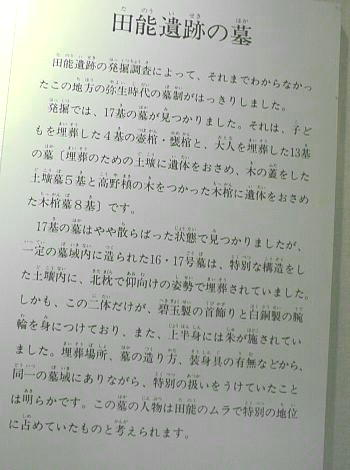 田能遺跡の墓
田能遺跡の発掘調査によって、それまでわからなかっ
たこの地方の弥生時代の墓制がはっきりしました。
発掘では、17基の墓が見つかりました。それは、子ど
もを埋葬した4基の壺棺・甕棺と、大人を埋葬した13基
の墓〔埋葬のための土壙に遺体をおさめ、木の蓋をした
土壙墓5基と高野槙の木をつかった木棺に遺体をおさめ
た木棺墓8基〕です。
17基の墓はやや散らばった状態で見つかりましたが、
一定の墓域内に造られた16・17号墓は、特別な構造をし
た土壙内に、北枕で仰向けの姿勢で埋葬されていました。
しかも、この二体だけが、碧玉製の首飾りと白銅製の腕
輪を身につけており、また、上半身には朱が施されてい
ました。埋葬場所、墓の造り方、装身具の有無などから、
同一の墓域にありながら、特別の扱いをうけていたこと
は明らかです。この墓の人物は田能のムラで特別の地位
に占めていたものと考えられます。